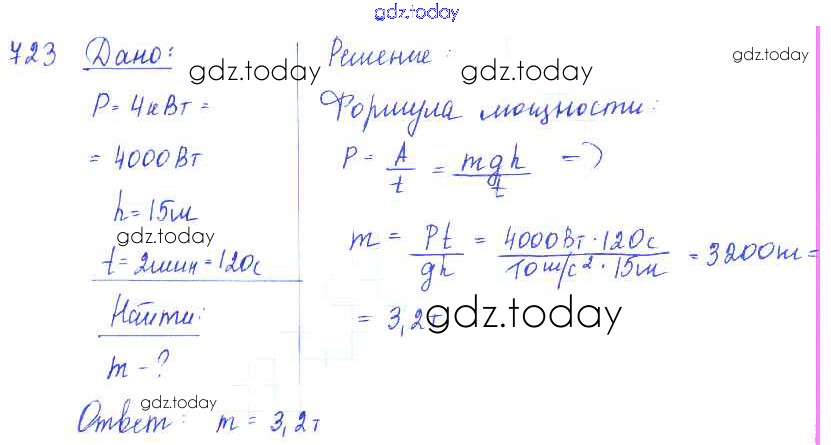 gdz.today
723 Дано:
gdz.today
P = 4кВт =
= 4000 Вт
h = 15м
gdz.today
t = 2мин = 120с
Найти:
m - ?
Решение:
gdz.today
gdz.today
Формула мощности:
P = A/t = mgh/t =>
m = Pt/gh = 4000Вт · 120с / 10м/с² · 15м = 3200кг =
= 3,2т
gdz.today
gdz.today
Ответ: m = 3,2т